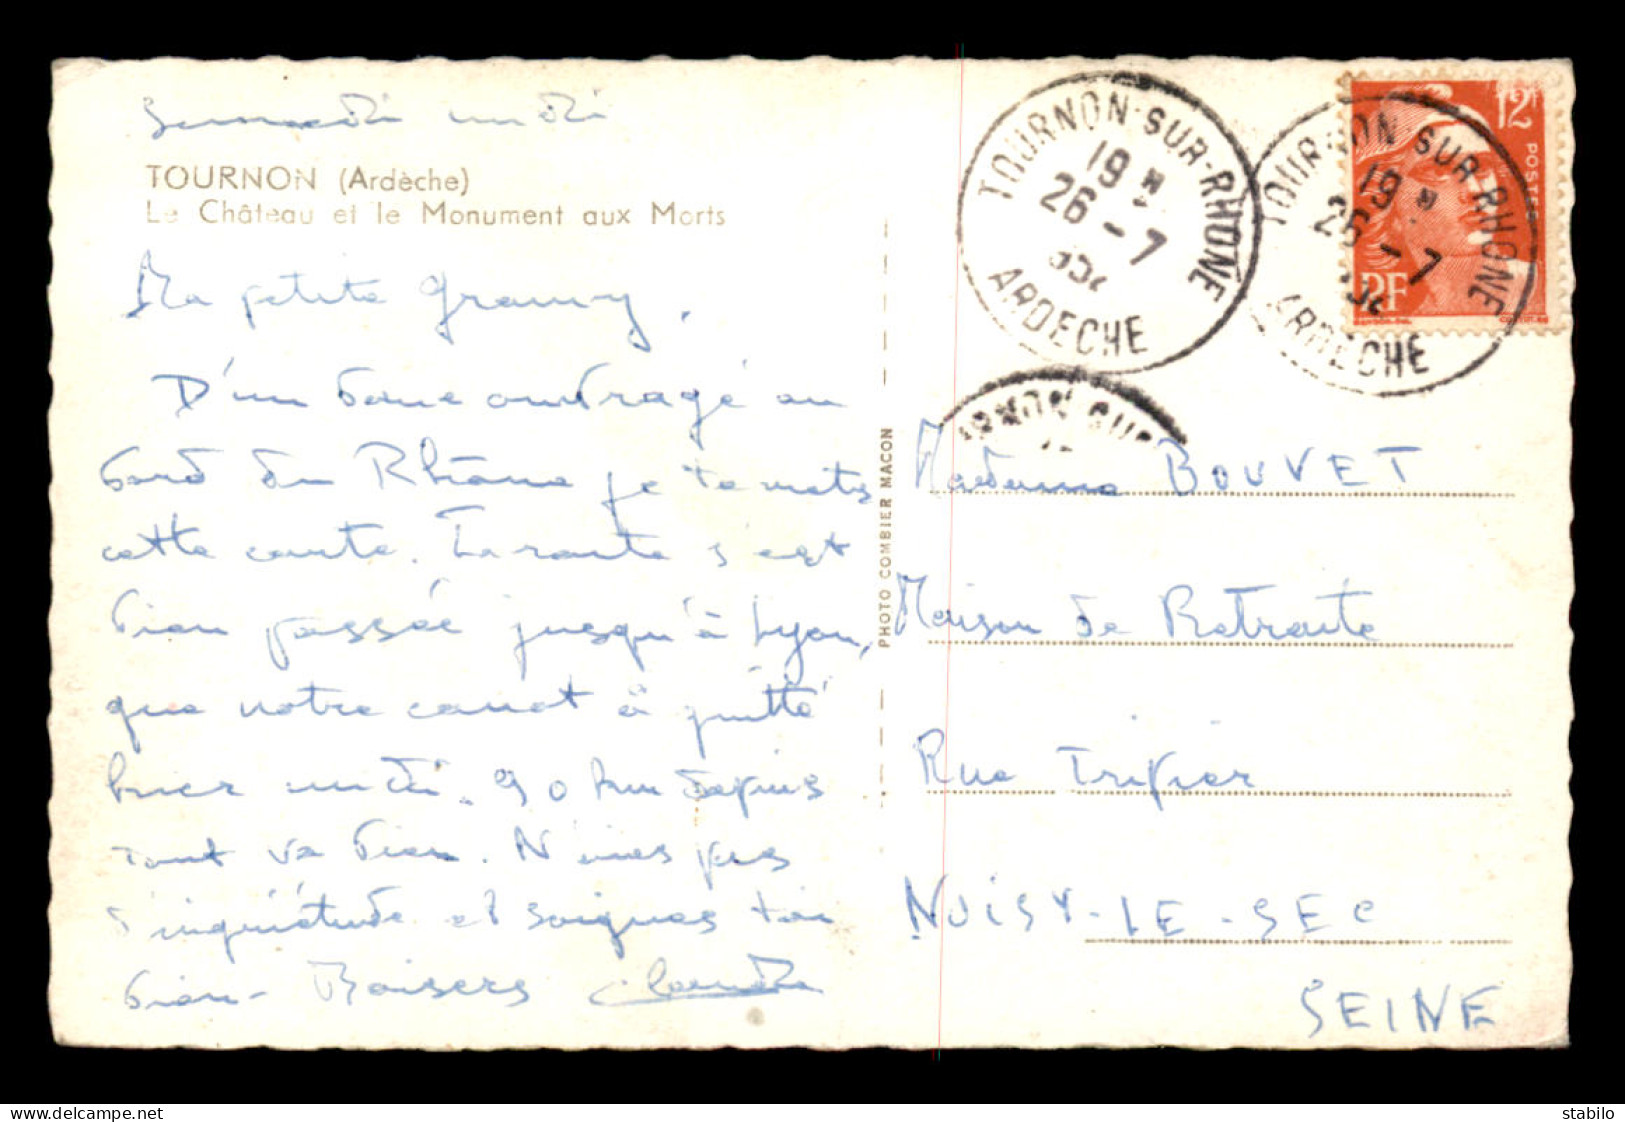 Samedi midi
TOURNON (Ardèche)
Le Château et le Monument aux Morts
Ma petite Grammy,
D'un banc ombragé au
bord du Rhône je te mets
cette carte. La route s'est
bien passée jusqu'à Lyon,
que notre canot à quitté
hier midi. 90 km depuis
tout va bien. N'aies pas
d'inquiétude et soignes toi
bien - Baisers Claude
PHOTO COMBIER MACON
TOURNON-SUR-RHÔNE
19 H
26 - 7
ARDECHE
TOURNON-SUR-RHONE
19 H
26 - 7
ARDECHE
12F
POSTES
RF
Madame BOUVET
Maison de Retraite
Rue Tripier
NOISY-LE-SEC
SEINE
www.delcampe.net
stabilo